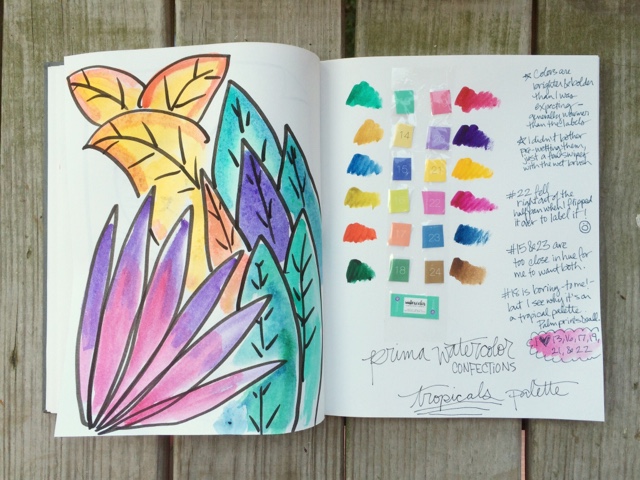 * Colors are
brighter & bolder
than I was
expecting -
generally warmer
than the labels
* I didn't bother
pre-wetting them,
just a back swipe
with the wet brush
#22 fell
right out of the
half pan when I flipped
it over to label it!
#15 & 23 are
too close in hue for
me to want both.
#18 is boring - to me! -
but I see why it's in
a tropical palette
Palm prints y'all.
I ♥ 13, 16, 17, 19,
21, & 22
14
15
22
23
18
24
prima watercolor
CONFECTIONS
tropicals palette